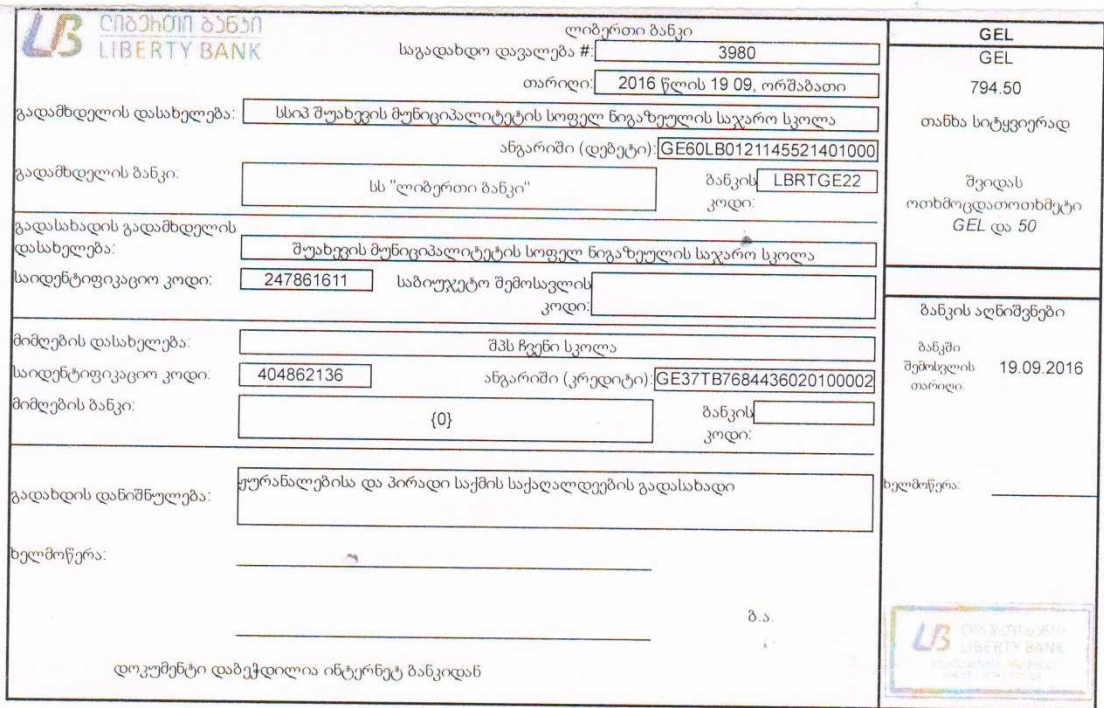 ლიბერთი ბანკი
LIBERTY BANK
ლიბერთი ბანკი
საგადახდო დავალება #: 3980
თარიღი: 2016 წლის 19 09, ორშაბათი
გადამხდელის დასახელება: სსიპ შუახევის მუნიციპალიტეტის სოფელ ნიგაზეულის საჯარო სკოლა
ანგარიში (დებეტი): GE60LB0121145521401000
გადამხდელის ბანკი: სს "ლიბერთი ბანკი" ბანკის კოდი: LBRTGE22
გადასახადის გადამხდელის
დასახელება: შუახევის მუნიციპალიტეტის სოფელ ნიგაზეულის საჯარო სკოლა
საიდენტიფიკაციო კოდი: 247861611 საბიუჯეტო შემოსავლის
კოდი:
მიმღების დასახელება: შპს ჩვენი სკოლა
საიდენტიფიკაციო კოდი: 404862136 ანგარიში (კრედიტი): GE37TB7684436020100002
მიმღების ბანკი: {0} ბანკის
კოდი:
გადახდის დანიშნულება: ჟურანალებისა და პირადი საქმის საქაღალდეების გადასახადი
ხელმოწერა:
ბ.ა.
დოკუმენტი დაბეჭდილია ინტერნეტ ბანკიდან
GEL
GEL
794.50
თანხა სიტყვიერად
შვიდას
ოთხმოცდათოთხმეტი
GEL და 50
ბანკის აღნიშვნები
ბანკში
შემოსვლის 19.09.2016
თარიღი:
ხელმოწერა:
ლიბერთი ბანკი
LIBERTY BANK